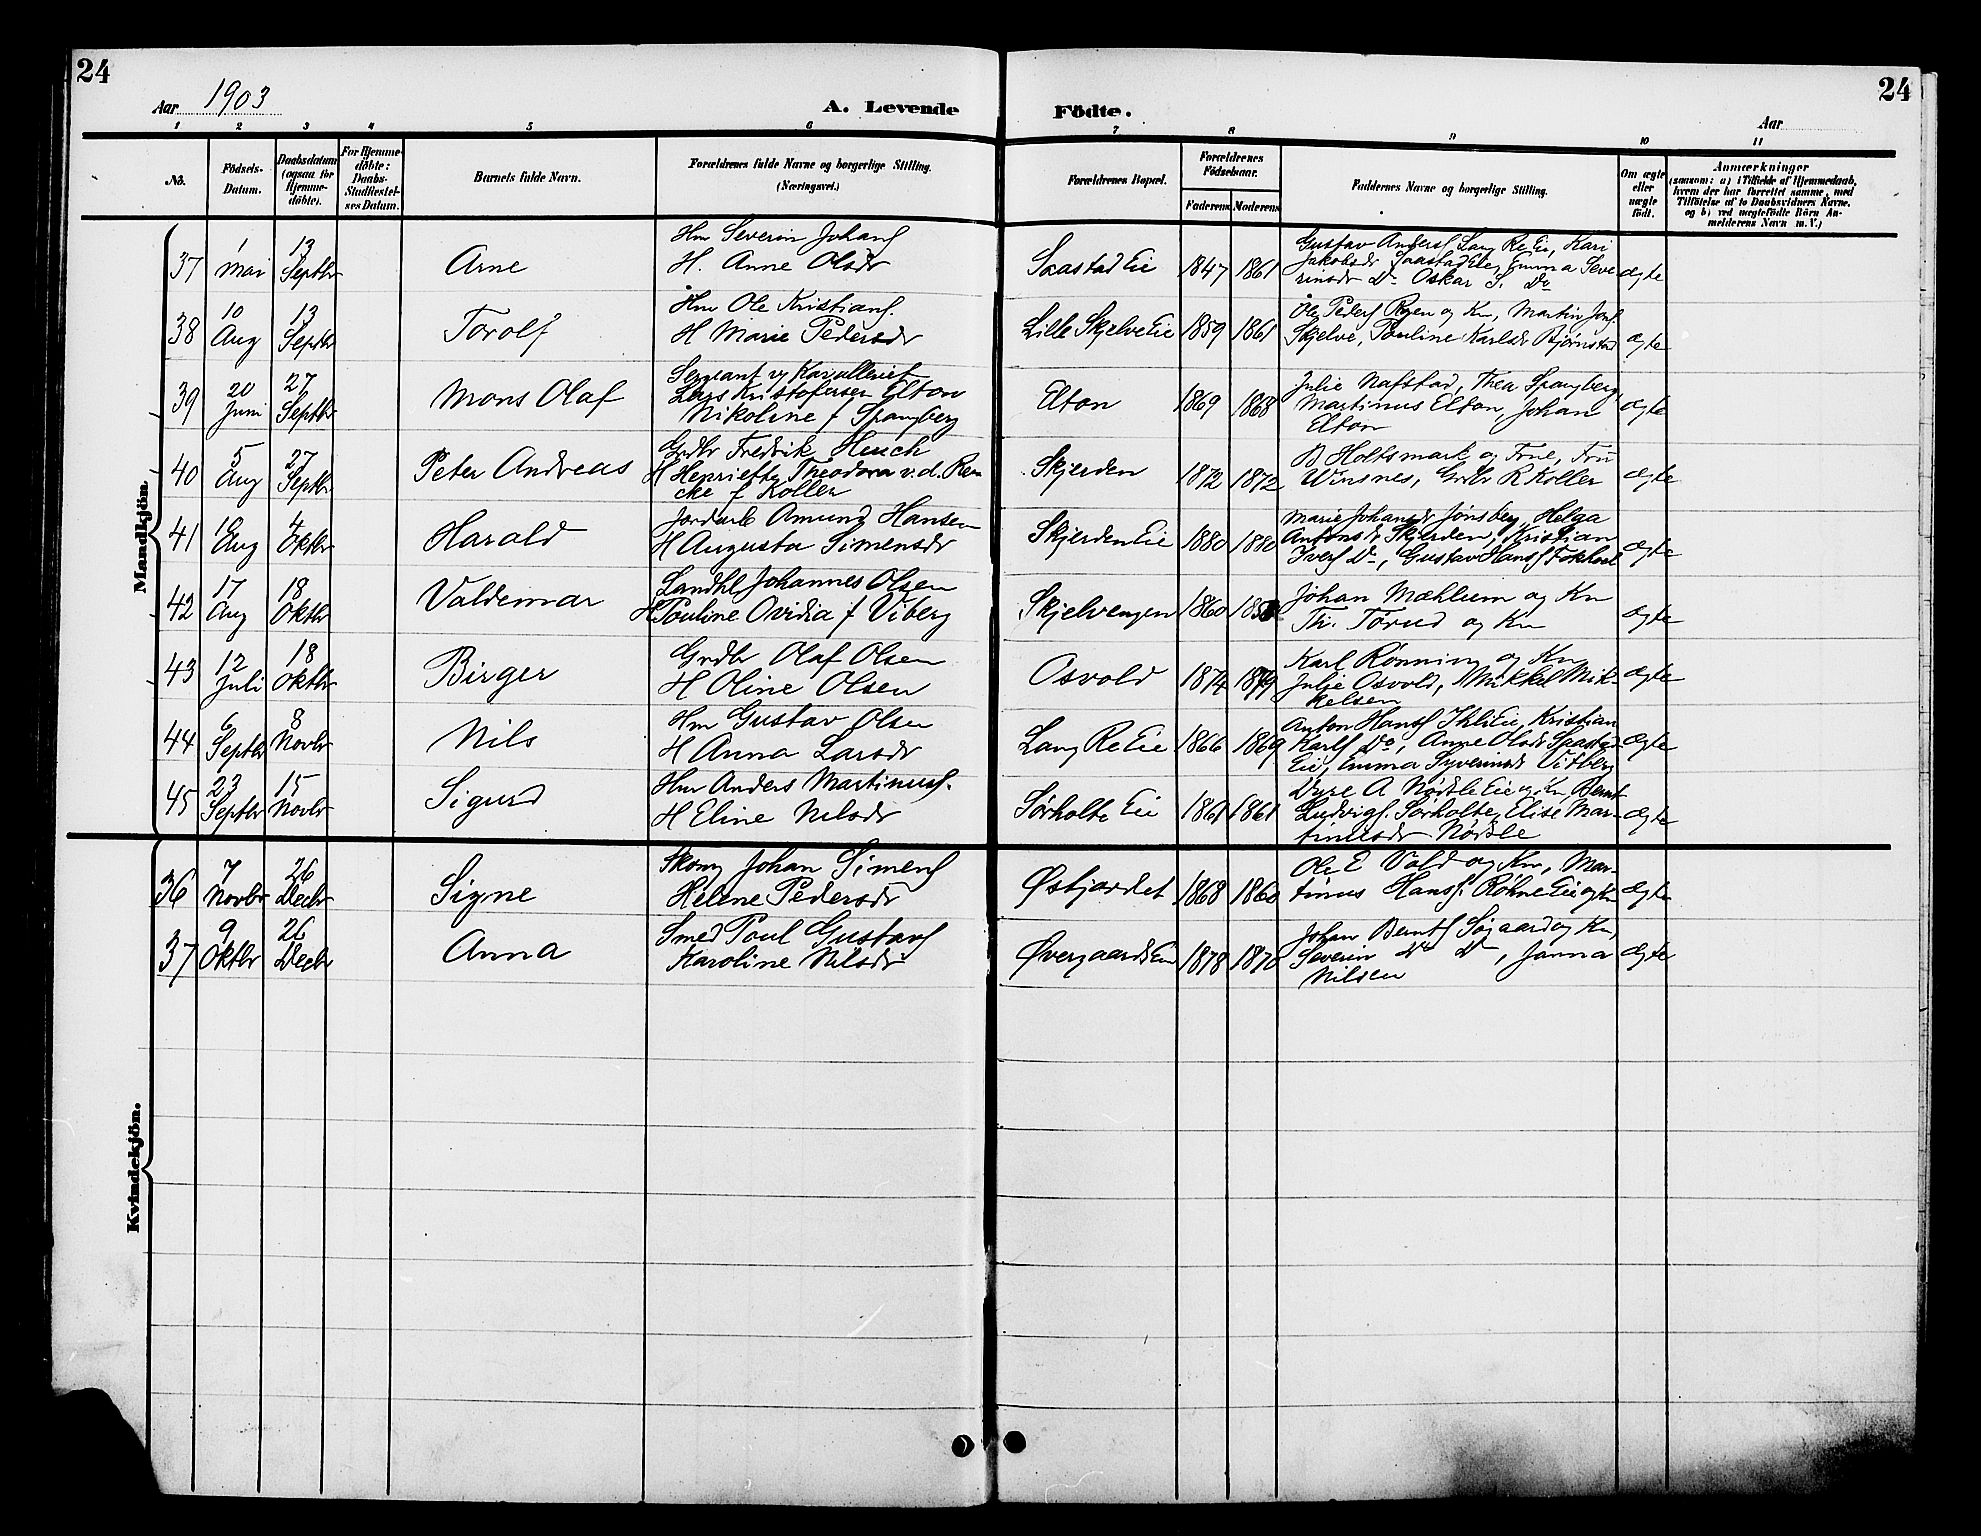 24
24
Aar 1903
A. Levende
Födte.
Aar
1 2 3 4 5 6 7 8 9 10 11
No.
Födsels-
Datum.
Daabsdatum
(ogsaa for
Hjemme-
döbte).
For Hjemme-
döbte:
Daabs-
Stadfæstel-
ses Datum.
Barnets fulde Navn.
Forældrenes fulde Navne og borgerlige Stilling.
(Næringsvei.)
Forældrenes Bopæl.
Forældrenes
Födselsaar.
Faderens
Moderens
Faddernes Navne og borgerlige Stilling.
Om ægte
eller
uægte
født.
Anmærkninger
(saasom: a) i Tilfælde af Hjemmedaab,
hvem der har forrettet samme, med
Tilföielse af to Daabsvidners Navne,
og b) ved uægtefödte Börn An-
melderens Navn m. V.)
Mandkjön.
37 1 Mai 13 Septbr Arne
Hm Severin Johans
H. Anne Olsdr
Saastad Eie 1847 1861
Gustav Anders Lang Re Eie, Kari
Jakobsdr Saastad Eie, Emma Seve
rinsdr Do Oskar S. Do
ægte
38 10 Aug 13 Septbr Torolf
Hm Ole Kristians.
H Marie Pedersdr
Lille Skjelve Eie 1859 1861
Ole Peders Ryen og Kn, Martin Jons
Skjelve, Pauline Karlsdr Bjørnstad
ægte
39 20 Juni 27 Septbr Mons Olaf
Sergeant v/ Kavalleriet
Lars Kristofersen Elton
Nikoline f Spangberg
Elton 1869 1868
Julie Nafstad, Thea Spangberg,
Martinus Elton, Johan
Elton
ægte
40 5 Aug 27 Septbr Peter Andreas
Grdbr Fredrik Heuch
H Henriette Theodora v. d. Rec
cke f Koller
Skjerden 1872 1872
B Holtsmark og Frue, Fru
Winsnes, Grdbr R Koller
ægte
41 Aug 4 Oktbr Harald
Jordarb Amund Hansen
H Augusta Simensdr
Skjerden Eie 1880 1880
Marie Johansdr Jønsberg, Helga
Antonsdr Skjerden, Kristian
Ivers Do, Gustav Hans Fokhol
ægte
42 17 Aug 18 Oktbr Valdemar
Landhl Johannes Olsen
H Pauline Ovidia f Viberg
Skjelvengen 1860
Johan Mæhlum og Kn
Th. Torud og Kn
ægte
43 12 Juli 18 Oktbr Birger
Grdbr Olaf Olsen
H Oline Olsen
Osvold 1874 1879
Karl Rønning og Kn
Julie Osvold, Mikkel Mik-
kelsen
ægte
44 6 Septbr 8 Novbr Nils
Hm Gustav Olsen
H Anna Larsdr
Lang Re Eie 1866 1869
Anton Hans Ihli Eie, Kristian
Karls Do, Anne Olsdr Saastad
Eie, Emma Syverinsdr Vitberg
ægte
45 23 Septbr 15 Novbr Sigurd
Hm Anders Martinus.
H Eline Nilsdr
Sørholte Eie 1861 1861
Dyre A Nordle Eie og Kn, Bernt
Ludvigs. Sørholte, Elise Mar-
tinusdr Nordle
ægte
Kvindekjön.
36 7 Novbr 26 Decbr Signe
Skom Johan Simens
Helene Pedersdr
Østjordet 1868 1860
Ole E Vold og Kn, Mar-
tinus Hans. Røhne Eie og Kn
ægte
37 9 Oktbr 26 Decbr Anna
Smed Poul Gustavs
Karoline Nilsdr
Øvergaards Eie 1878 1870
Johan Bernts Søgaard og Kn,
Severin Do Do, Janna
Nilsen
ægte